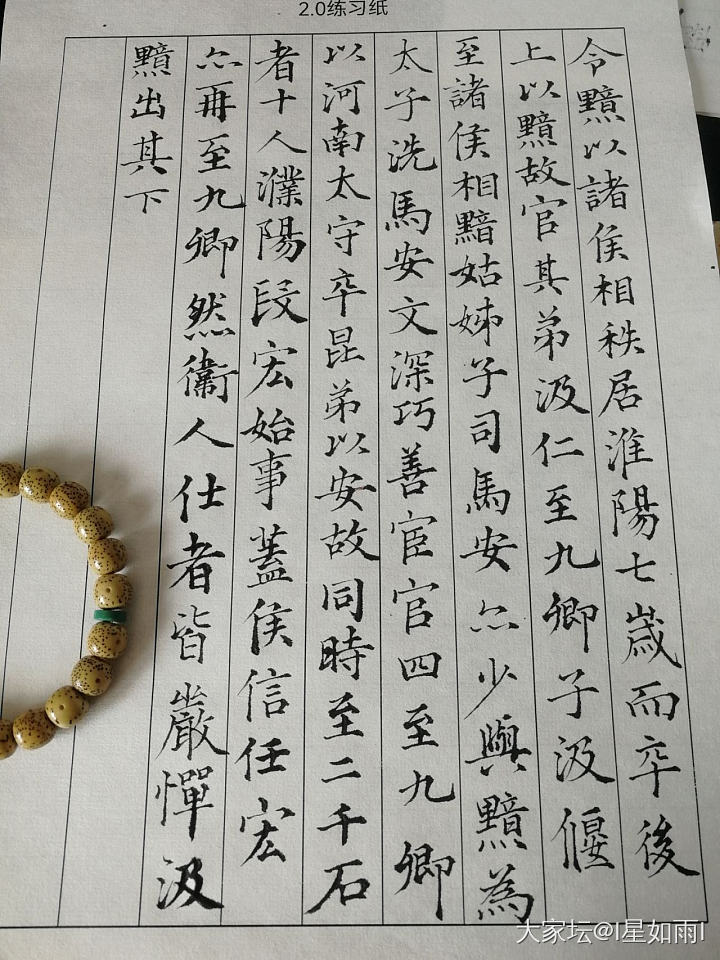 2.0练习纸
令黯以諸侯相秩居淮陽七歲而卒後
上以黯故官其弟汲仁至九卿子汲偃
至諸侯相黯姑姊子司馬安亦少與黯為
太子洗馬安文深巧善宦官四至九卿
以河南太守卒昆弟以安故同時至二千石
者十人濮陽段宏始事蓋侯信任宏
亦再至九卿然衞人仕者皆嚴憚汲
黯出其下
大家坛@l星如雨l